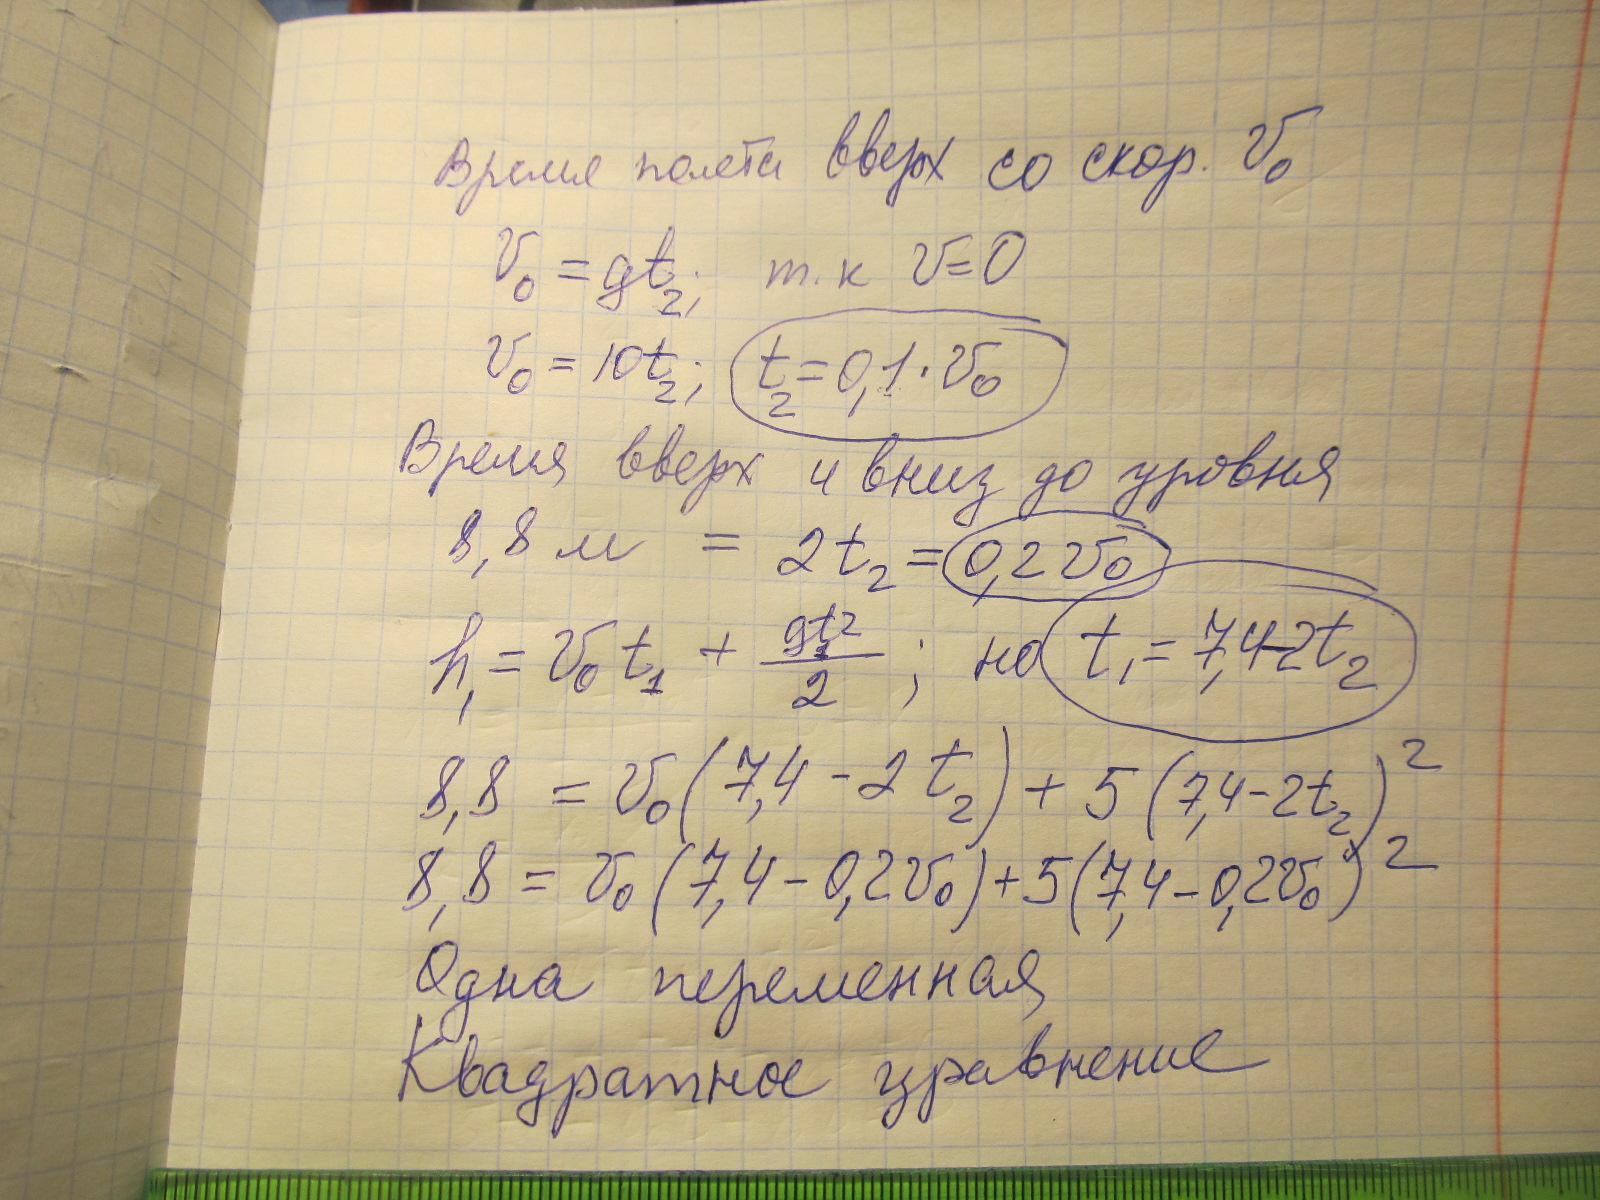 Время полёта вверх со скор. V₀
V₀ = gt₂; т.к V=0
V₀ = 10t₂; t₂=0,1·V₀
Время вверх и вниз до уровня
8,8 м = 2t₂ = 0,2V₀
h₁ = V₀t₁ + gt₁²/2; но t₁ = 7,4-2t₂
8,8 = V₀(7,4-2t₂)+5(7,4-2t₂)²
8,8 = V₀(7,4-0,2V₀)+5(7,4-0,2V₀)²
Одна переменная
Квадратное уравнение